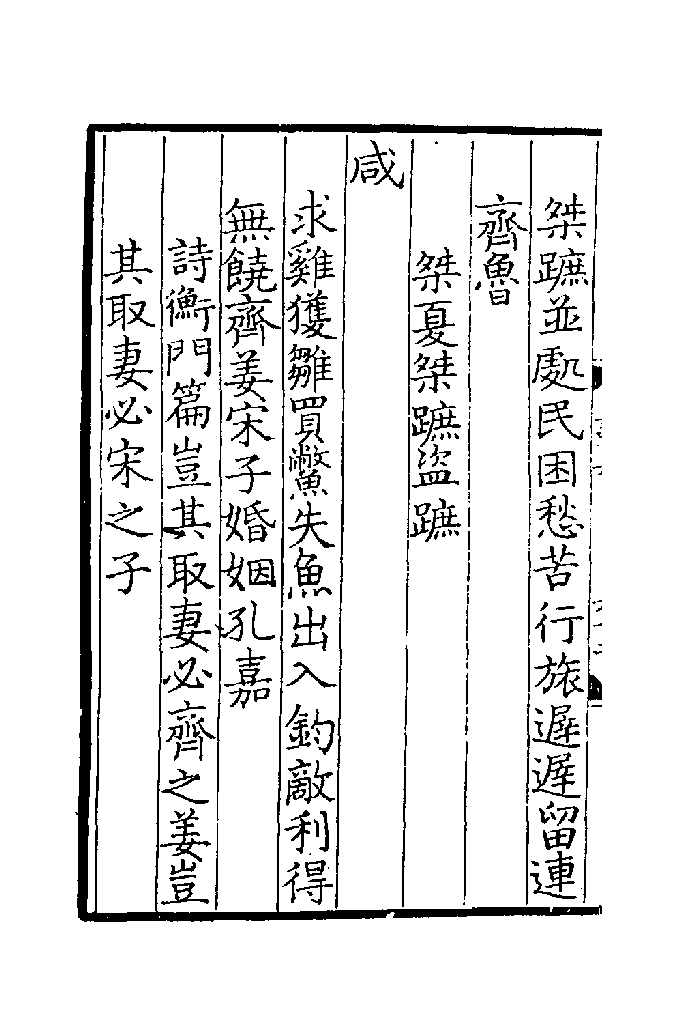 桀蹠並處民困愁苦行旅遲遲留連
齊魯
桀夏桀蹠盜蹠
咸
求雞獲雛買鱉失魚出入鈞敵利得
無饒齊姜宋子婚姻孔嘉
詩衡門篇豈其取妻必齊之姜豈
其取妻必宋之子